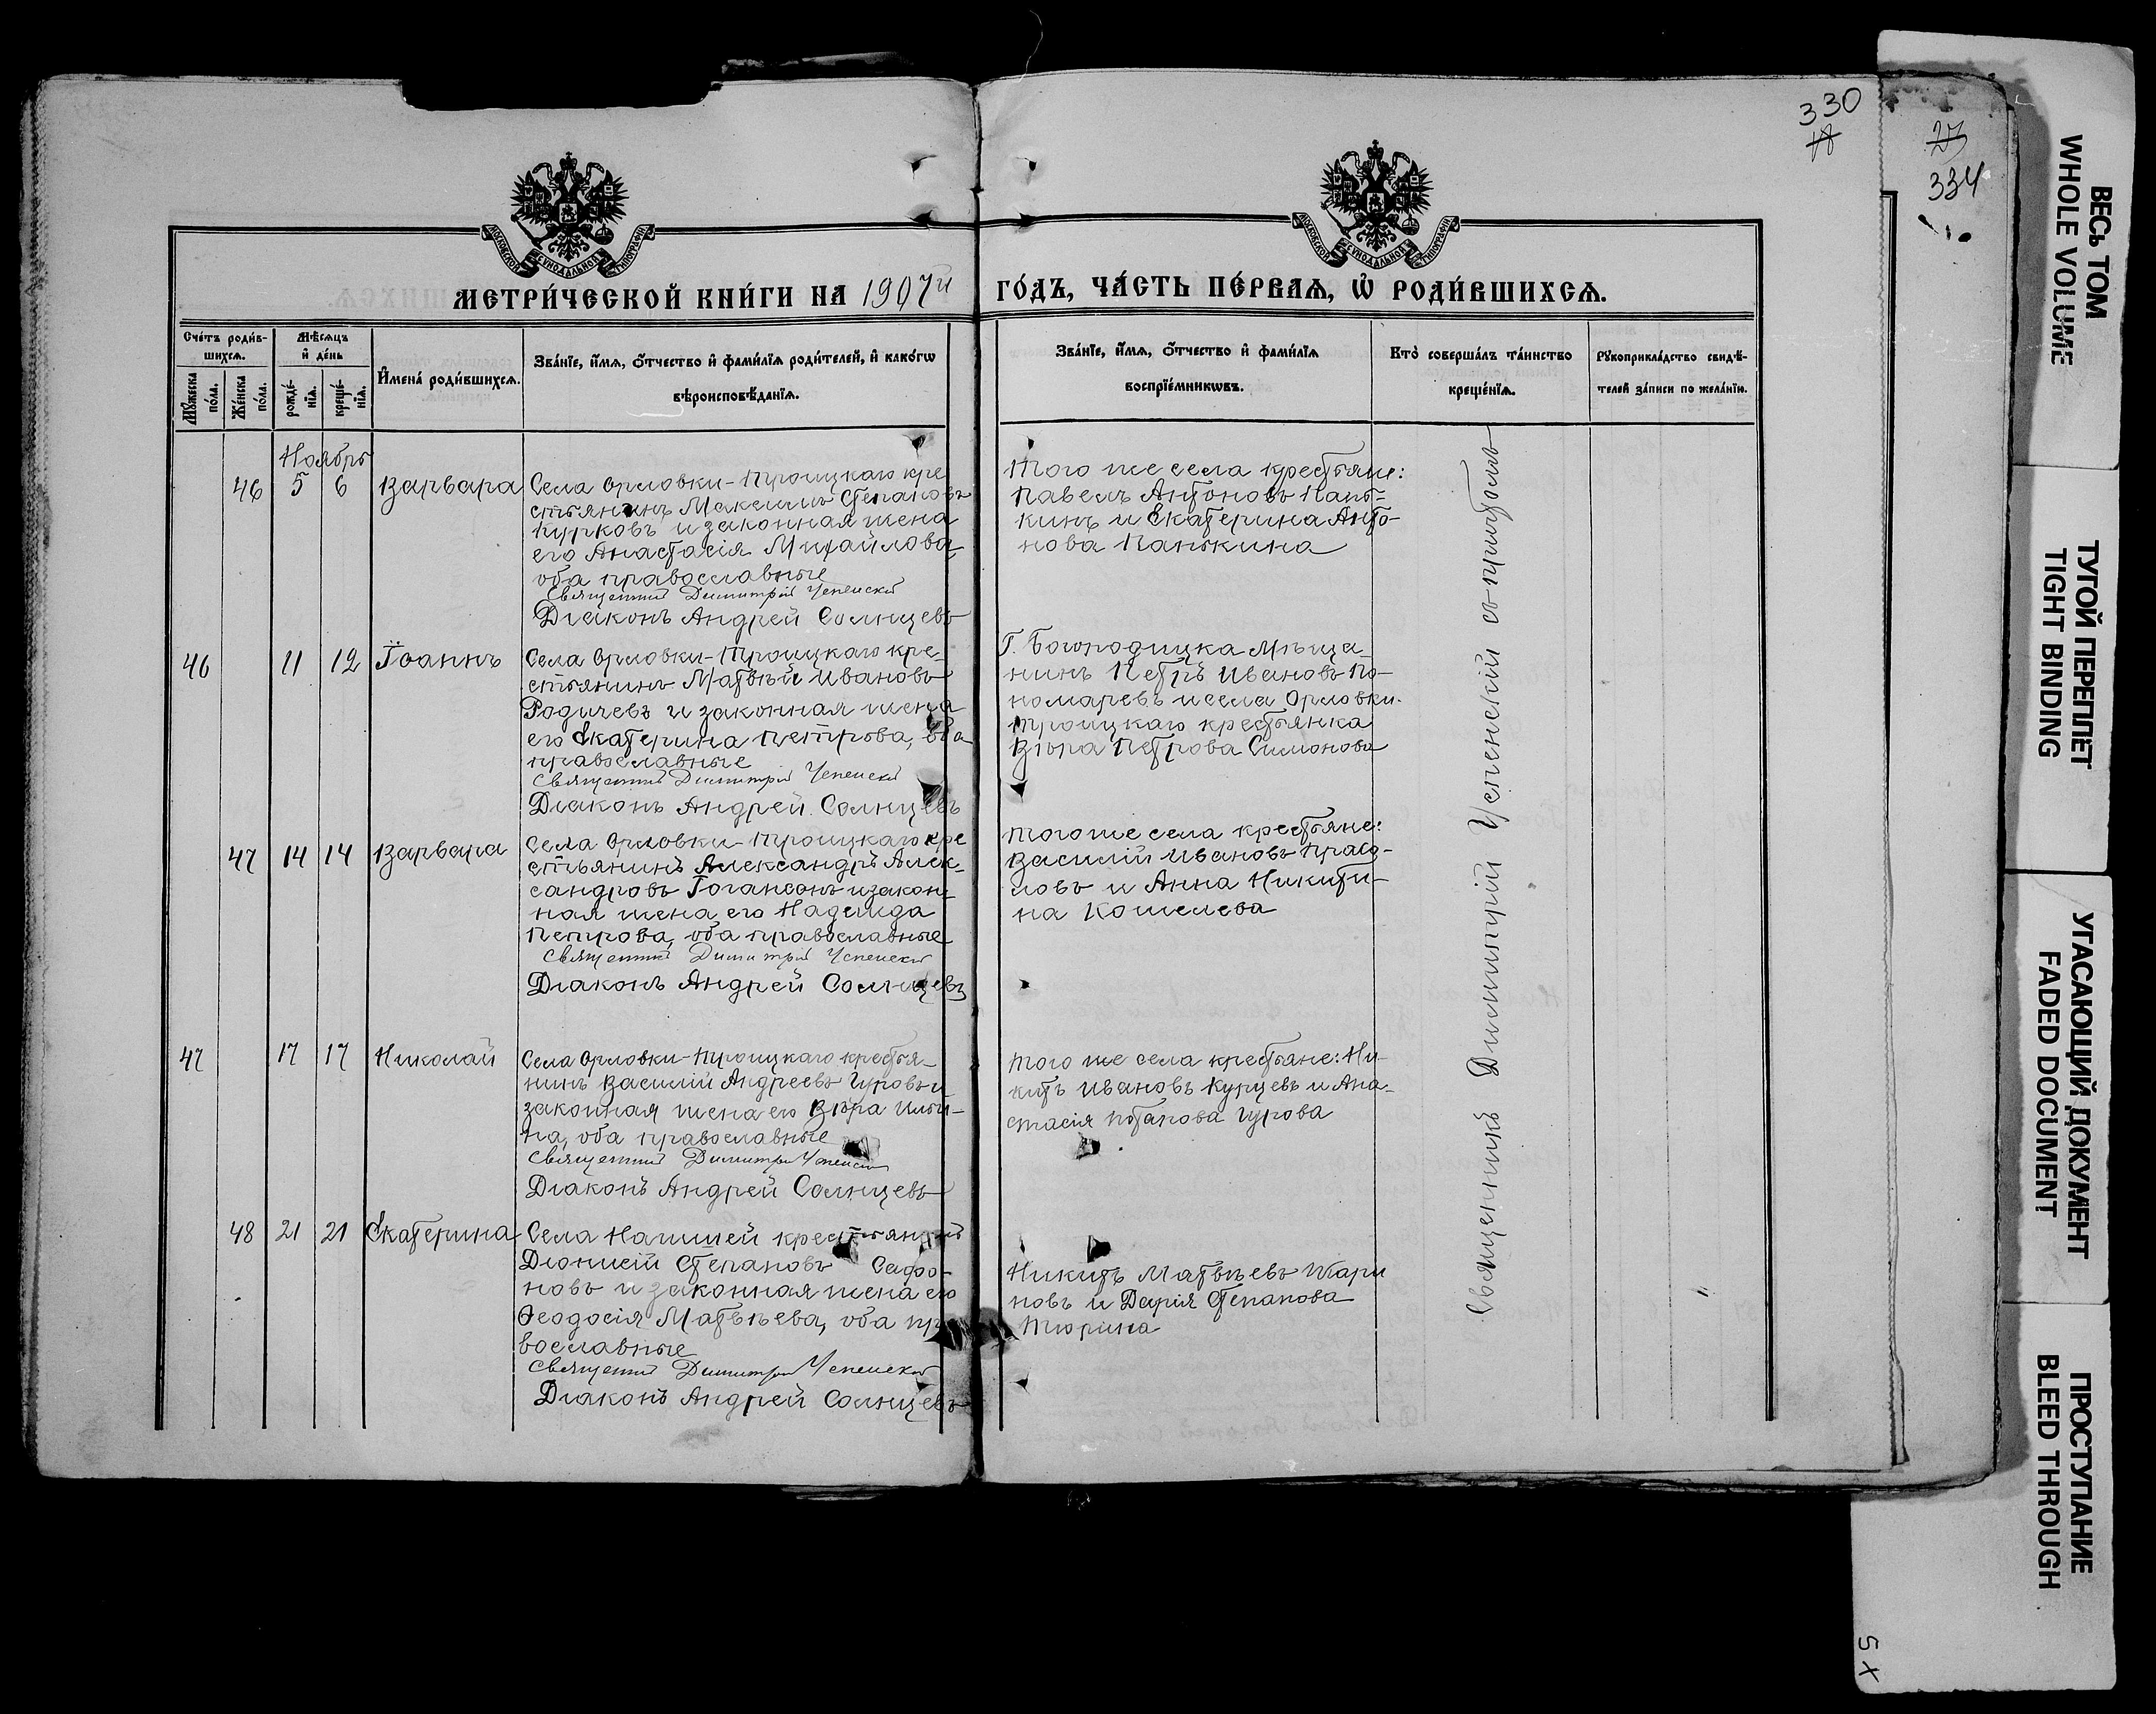 330
18
27
334
МОСКОВСКОЙ СѴНОДАЛЬНОЙ ТИПОГРАФІИ
МОСКОВСКОЙ СѴНОДАЛЬНОЙ ТИПОГРАФІИ
МЕТРИ́ЧЕСКОЙ КНИ́ГИ НА 1907й ГО́ДЪ, ЧА́СТЬ ПЕ́РВАѦ, Ѡ҆ РОДИ́ВШИХСѦ.
Сче́тъ роди́в-
шихсѧ.
Мꙋ́жеска по́ла.
Же́нска по́ла.
Мѣ́сѧцъ
и҆ де́нь
рожде́-
нїѧ.
креще́-
нїѧ.
И҆мена̀ роди́вшихсѧ.
Зва́нїе, и҆́мѧ, ѻ҆́тчество и҆ фами́лїѧ роди́телей, и҆ како́гѡ
вѣроисповѣ́данїѧ.
Зва́нїе, и҆́мѧ, ѻ҆́тчество и҆ фами́лїѧ
воспрїе́мникѡвъ.
Кто̀ соверша́лъ та́инство
креще́нїѧ.
Рꙋкоприкла́дство свидѣ́-
телей за́писи по жела́нїю.
Ноябрь
46 5 6 Варвара
Села Орловки-Троицкаго кре
стьянинъ Максимъ Степановъ
Курковъ и законная жена
его Анастасія Михайлова,
оба православные
Священникъ Димитрій Успенскій
Діаконъ Андрей Солнцевъ
Того же села крестьяне:
Павелъ Антоновъ Пань-
кинъ и Екатерина Анто-
нова Панькина
46 11 12 Іоаннъ
Села Орловки-Троицкаго кре-
стьянинъ Матвѣй Ивановъ
Родичевъ и законная жена
его Екатерина Петрова, оба
православные
Священникъ Димитрій Успенскій
Діаконъ Андрей Солнцевъ
Г. Богородицка мѣща-
нинъ Петръ Ивановъ По-
номаревъ и села Орловки-
Троицкаго крестьянка
Вѣра Петрова Симонова
47 14 14 Варвара
Села Орловки-Троицкаго кре
стьянинъ Александръ Алек-
сандровъ Іогансонъ и закон-
ная жена его Надежда
Петрова, оба православные
Священникъ Димитрій Успенскій
Діаконъ Андрей Солнцевъ
Того же села крестьяне:
Василій Ивановъ
и Анна Никити-
на Кошелева
47 17 17 Николай
Села Орловки-Троицкаго крестья-
нинъ Василій Андреевъ Гуровъ и
законная жена его Вѣра Ильи-
на, оба православные
Священникъ Димитрій Успенскій
Діаконъ Андрей Солнцевъ
Того же села крестьяне: Ни-
китъ Ивановъ Курцевъ и Ана-
стасія Потапова Гурова
48 21 21 Екатерина
Села крестьянинъ
Діонисій Степановъ Сафо-
новъ и законная жена его
Ѳеодосія Матвѣева, оба пра
вославные
Священникъ Димитрій Успенскій
Діаконъ Андрей Солнцевъ
Никитъ Матвѣевъ Шари
новъ и Дарія Степанова
Тюрина
Священникъ Димитрій Успенскій съ причтомъ
ВЕСЬ ТОМ
WHOLE VOLUME
ТУГОЙ ПЕРЕПЛЕТ
TIGHT BINDING
УГАСАЮЩИЙ ДОКУМЕНТ
FADED DOCUMENT
ПРОСТУПАНИЕ
BLEED THROUGH
5 X